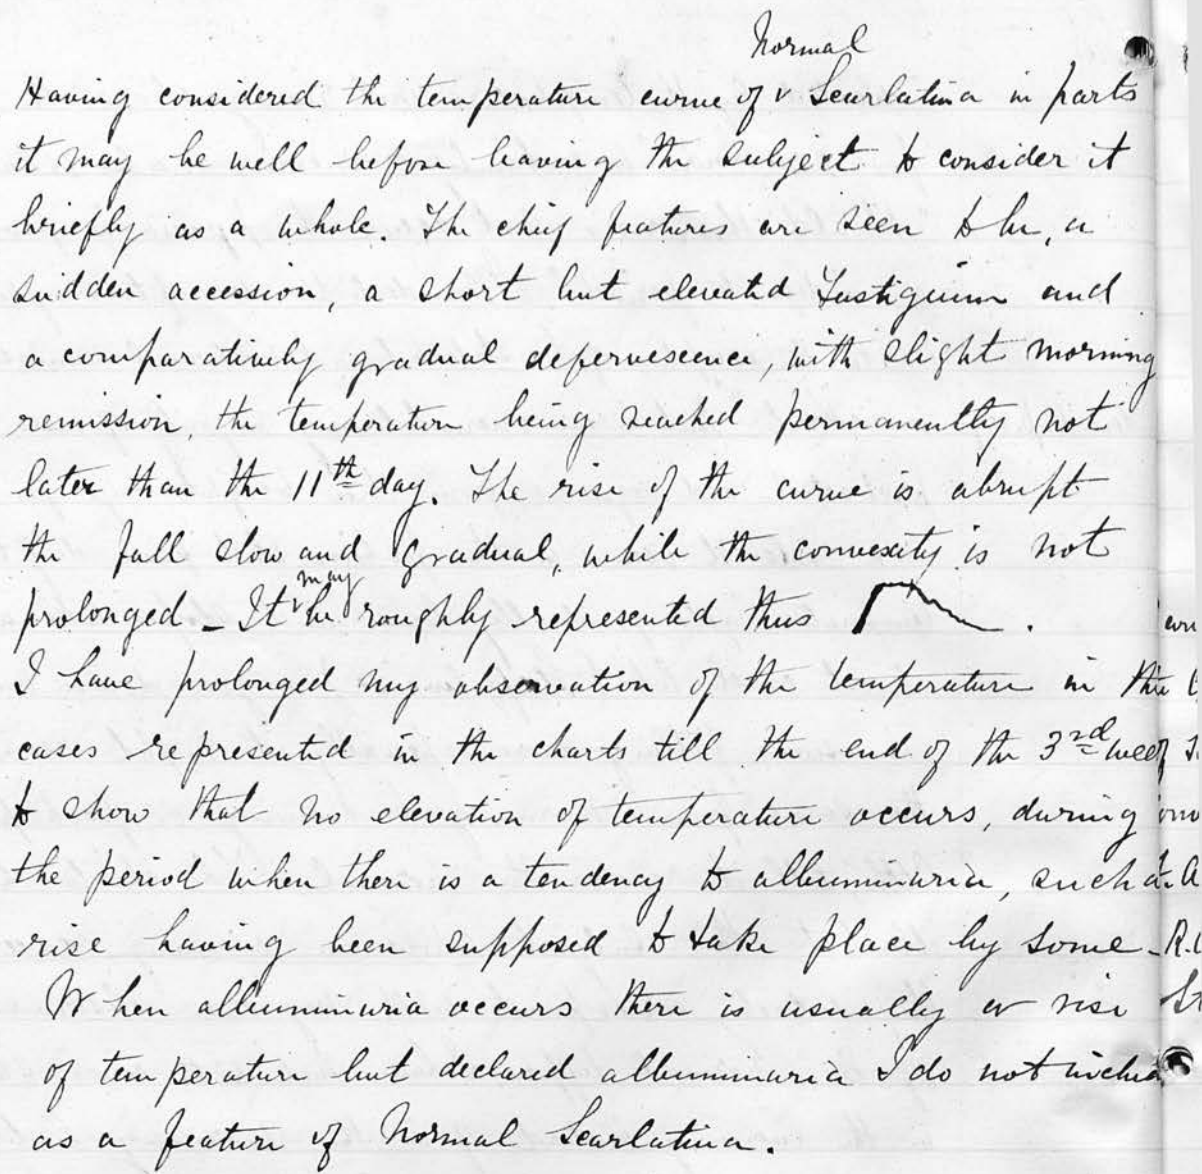 Normal
Having considered the temperature curve of v Scarlatina in parts
it may be well before leaving the subject to consider it
briefly as a whole. The chief features are seen to be, a
sudden accession, a short but elevated Fastigium and
a comparatively gradual defervescence, with slight morning
remission, the temperature being reached permanently not
later than the 11th day. The rise of the curve is abrupt
the fall slow and gradual, while the convexity is not
may
prolonged - It v be roughly represented thus .
I have prolonged my observation of the temperature in the
cases represented in the charts till the end of the 3rd week
to show that no elevation of temperature occurs, during
the period when there is a tendency to albuminuria, such a
rise having been supposed to take place by some -
When albuminuria occurs there is usually a rise
of temperature but declared albuminuria I do not
as a feature of Normal Scarlatina.